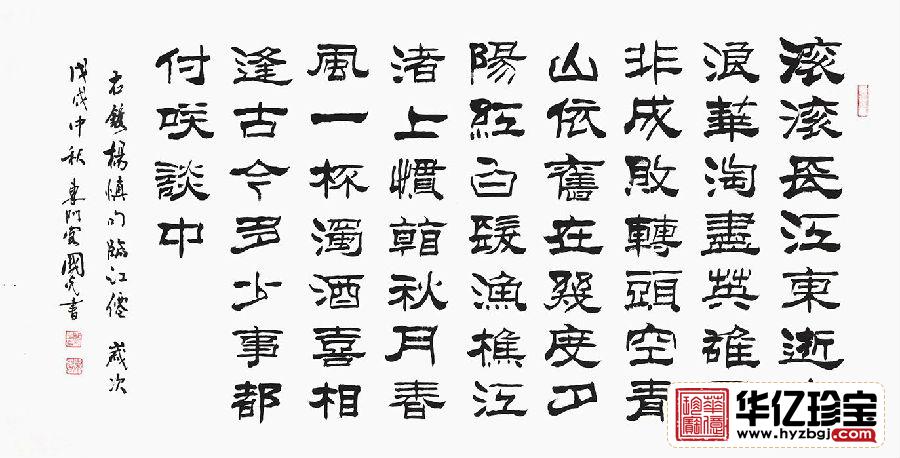 滚滚長江東逝
浪華淘盡英雄
非成敗轉頭空青
山依舊在幾度夕
陽紅白髮漁樵江
渚上慣看秋月春
風一杯濁酒喜相
逢古今多少事都
付咲談中
右錄楊慎的臨江僊 歲次
戊戌中秋 東 國 書
华亿珍宝
www.hyzbgj.com